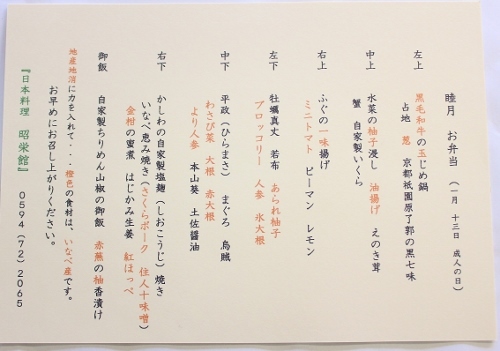 睦月 お弁当 (一月 十三日 成人の日)
左上 黒毛和牛の玉じめ鍋
占地 葱 京都祇園原了郭の黒七味
中上 水菜の柚子浸し 油揚げ えのき茸
蟹 自家製いくら
右上 ふぐの一味揚げ
ミニトマト ピーマン レモン
左下 牡蠣真丈 若布 あられ柚子
ブロッコリー 人参 氷大根
中下 平政(ひらまさ) まぐろ 烏賊
わさび菜 大根 赤大根
より人参 本山葵 土佐醤油
右下 かしわの自家製塩麹(しおこうじ)焼き
いなべ恵み焼き(さくらポーク 住人十味噌)
金柑の蜜煮 はじかみ生姜 紅ほっぺ
御飯 自家製ちりめん山椒の御飯 赤蕪の柚香漬け
地産地消に力を入れて・・・橙色の食材は、いなべ産です。
お早めにお召し上がりください。
『日本料理 昭栄館』 0594(72)2065